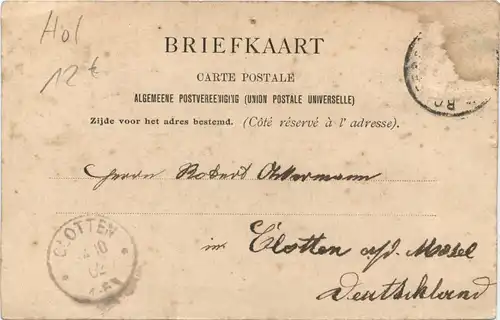 Hol
12 €
BRIEFKAART
CARTE POSTALE
ALGEMEENE POSTVEREENIGING (UNION POSTALE UNIVERSELLE)
Zijde voor het adres bestemd. (Côté réservé à l'adresse).
Herrn Robert
in Clotten a/d. Mosel
Deutschland
CLOTTEN